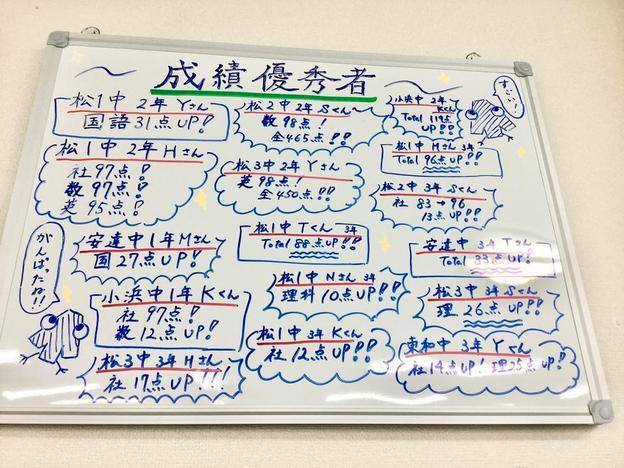 成績優秀者
松1中 2年 Yさん
国語31点UP!
松2中 2年 Sくん
数 98点!
全465点!!
小浜中 2年
Kくん
Total 119点
UP!!!
すごい!
松1中 2年 Hさん
社 97点!
数 97点!
英 95点!
松3中 2年 Yさん
英98点!
全450点!!
松1中 Mさん 3年
Total 96点UP!!!
松2中 3年 Sくん
社 83→96
13点UP!!
がんばったね!!
安達中1年Mさん
国27点UP!
松1中 Tくん 3年
Total 88点UP!!!
安達中 3年 Tさん
Total 33点UP!
小浜中1年 Kくん
社 97点!
数 12点UP!
松1中 Nさん 3年
理科10点UP!!
松3中 3年 Sくん
理 26点UP!!!
松3中 3年 Hさん
社 17点UP!!!
松1中 3年 Kくん
社12点UP!!
東和中 3年 Yくん
社14点UP! 理25点UP!